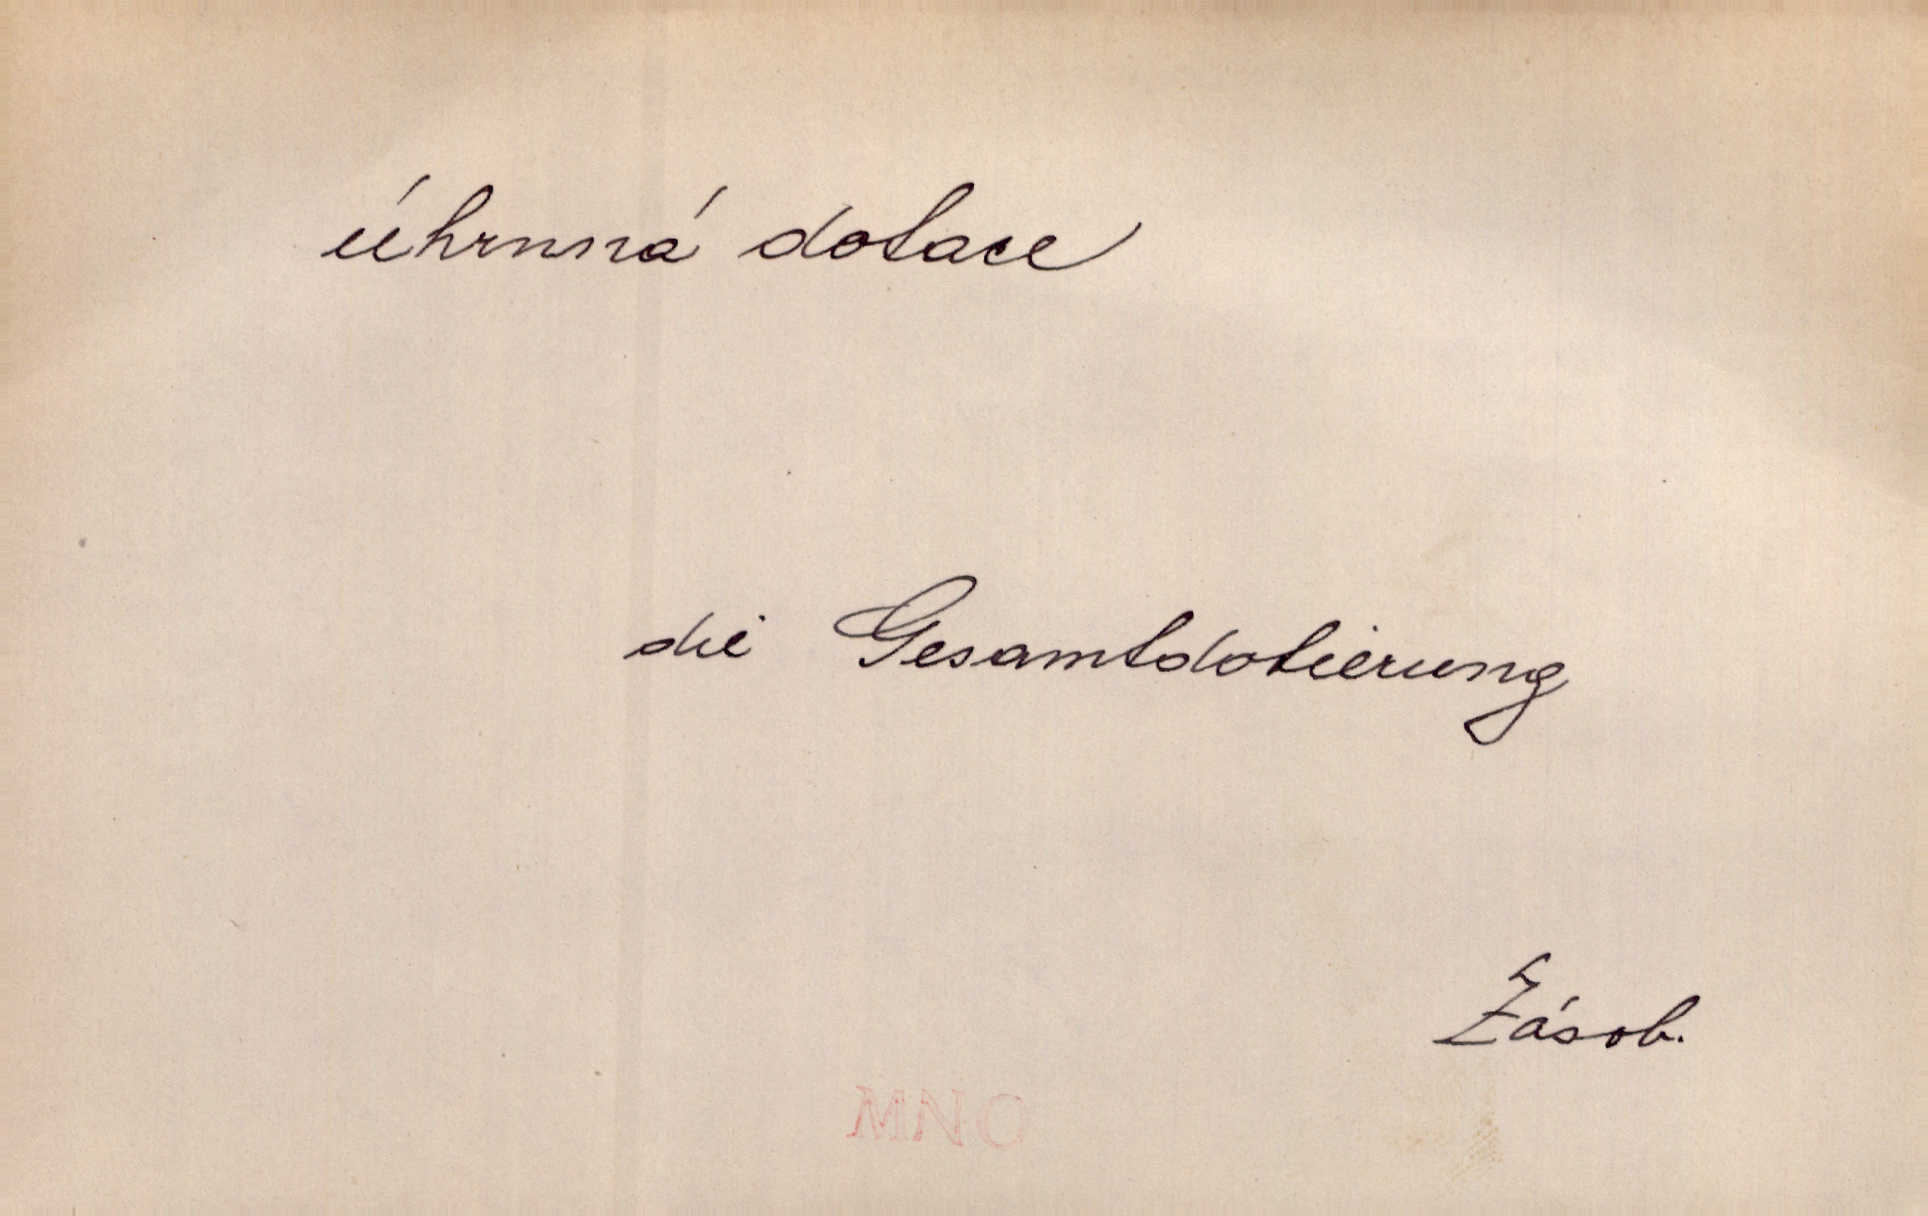 úhrnná dotace
die Gesamtdotierung
Zásob.
MNO